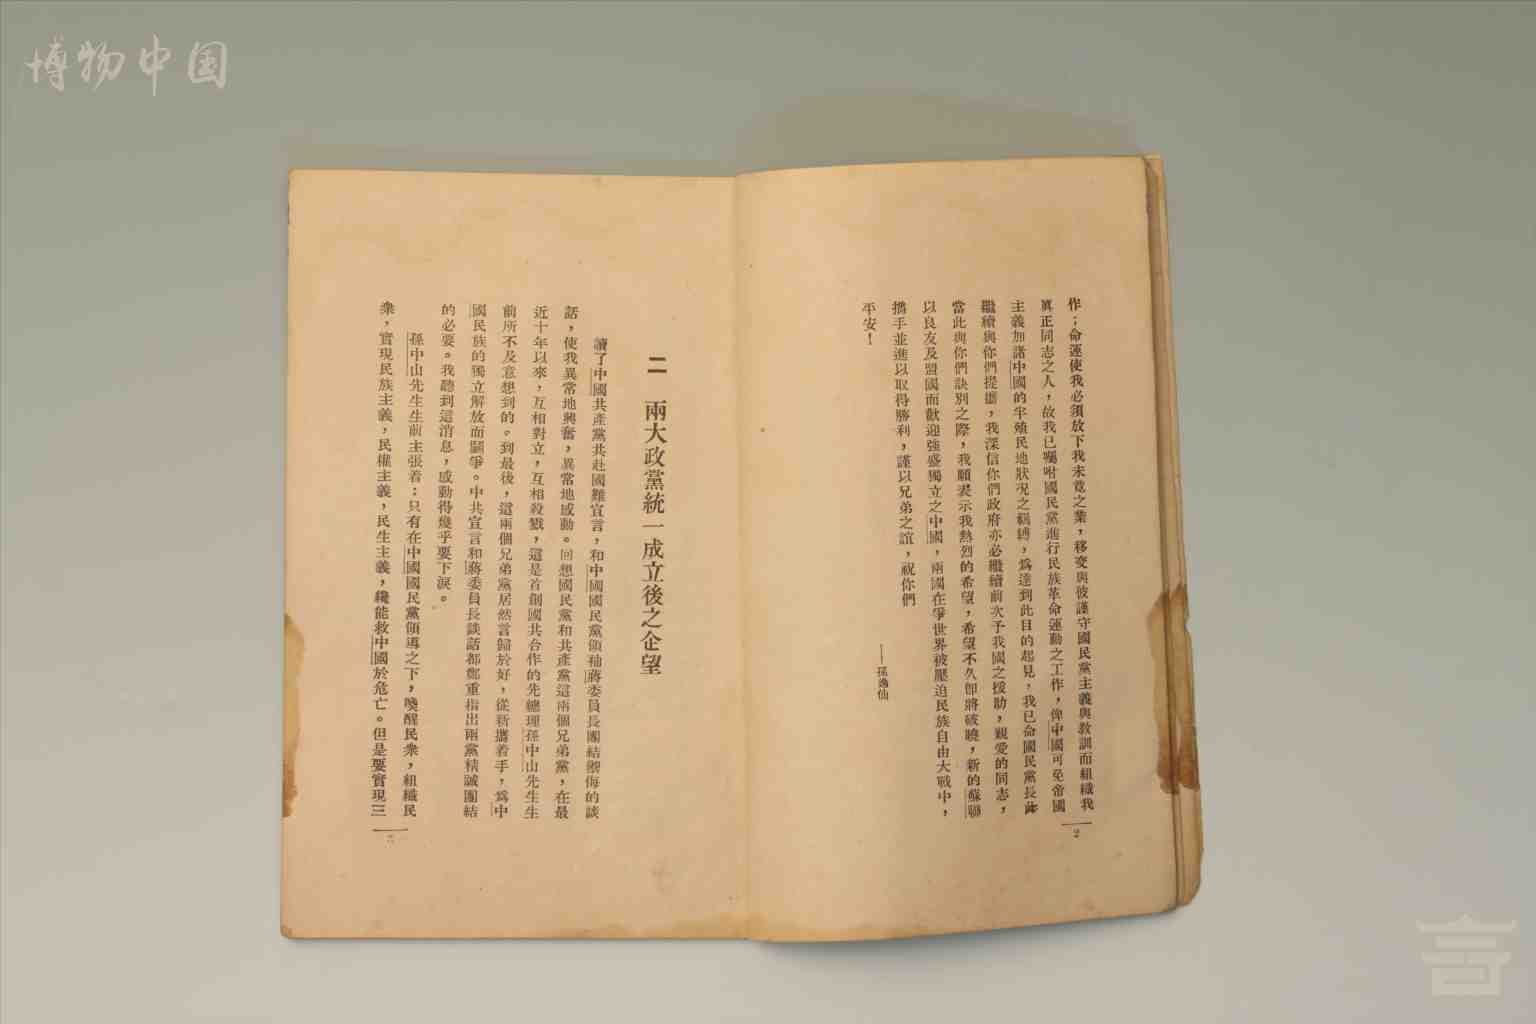 博物中国
作；命運使我必須放下我未竟之業，移交與彼謹守國民黨主義與教訓而組織我
眞正同志之人，故我已囑咐國民黨進行民族革命運動之工作，俾中國可免帝國
主義加諸中國的半殖民地狀況之羈縛，爲達到此目的起見，我已命國民黨長此
繼續與你們提攜，我深信你們政府亦必繼續前次予我國之援助，親愛的同志，
當此與你們訣別之際，我願表示我熱烈的希望，希望不久卽將破曉，新的蘇聯
以良友及盟國而歡迎強盛獨立之中國，兩國在爭世界被壓迫民族自由大戰中，
攜手並進以取得勝利，謹以兄弟之誼，祝你們
平安！
——孫逸仙
2
二 兩大政黨統一成立後之企望
讀了中國共產黨共赴國難宣言，和中國國民黨領袖蔣委員長團結禦侮的談
話，使我異常地興奮，異常地感動。回想國民黨和共產黨這兩個兄弟黨，在最
近十年以來，互相對立，互相殺戮，這是首創國共合作的先總理孫中山先生生
前所不及意想到的。到最後，這兩個兄弟黨居然言歸於好，從新攜着手，爲中
國民族的獨立解放而鬭爭。中共宣言和蔣委員長談話都鄭重指出兩黨精誠團結
的必要。我聽到這消息，感動得幾乎要下淚。
孫中山先生生前主張着：只有在中國國民黨領導之下，喚醒民衆，組織民
衆，實現民族主義，民權主義，民生主義，纔能救中國於危亡。但是要實現三